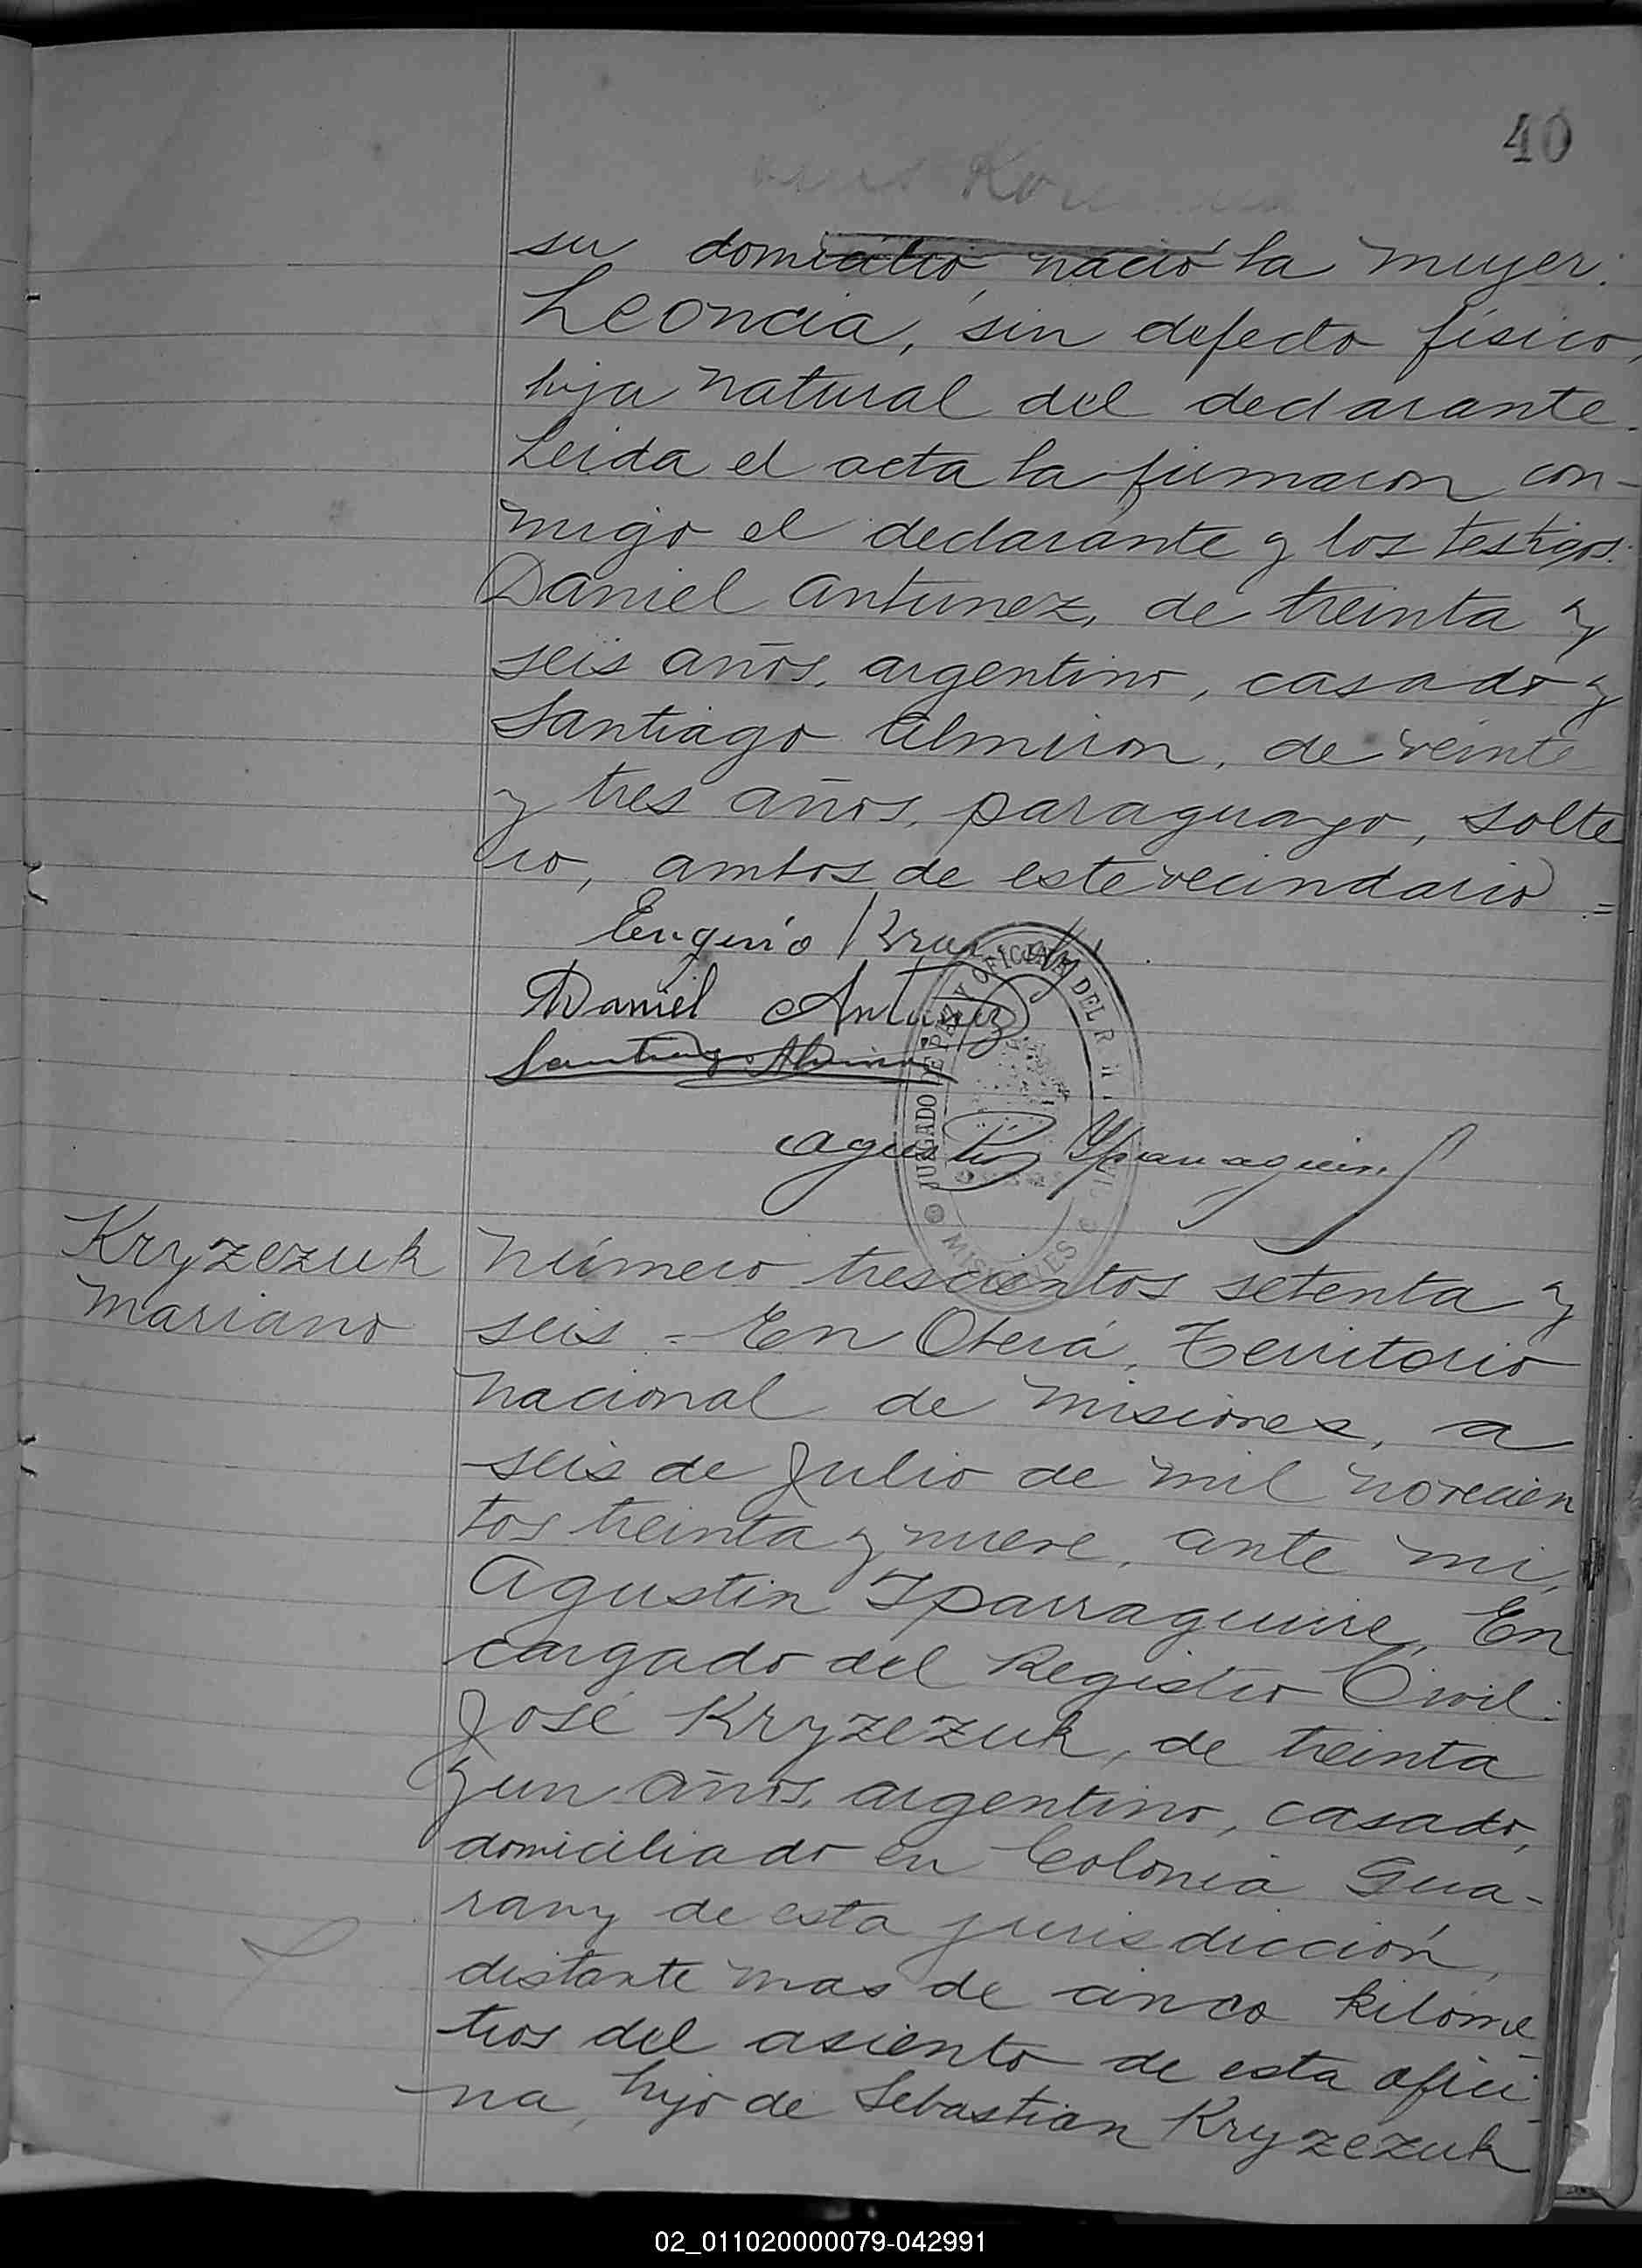 40
su domicilio, nació la mujer:
Leoncia, sin defecto físico,
hija natural del declarante.
Leida el acta la firmaron con-
migo el declarante y los testigos:
Daniel Antunez, de treinta y
seis años, argentino, casado y
Santiago Almiron, de veinte
y tres años, paraguayo, solte
ro, ambos de este vecindario =
Eugenio
Daniel Antunez
Santiago Almiron
JUZGADO DE PAZ Y OFICINA DEL R
MISIONES
Agustin Yparraguirre
Kryzezuk
Mariano
Número trescientos setenta y
seis = En Oberá, Territorio
Nacional de Misiones, a
seis de Julio de mil novecien
tos treinta y nueve, ante mi,
Agustin Yparraguirre, En
cargado del Registro Civil:
José Kryzezuk, de treinta
y un años, argentino, casado,
domiciliado en Colonia Gua-
rany de esta jurisdicción,
distante mas de cinco kilóme
tros del asiento de esta ofici
na, hijo de Sebastian Kryzezuk
02_011020000079-042991